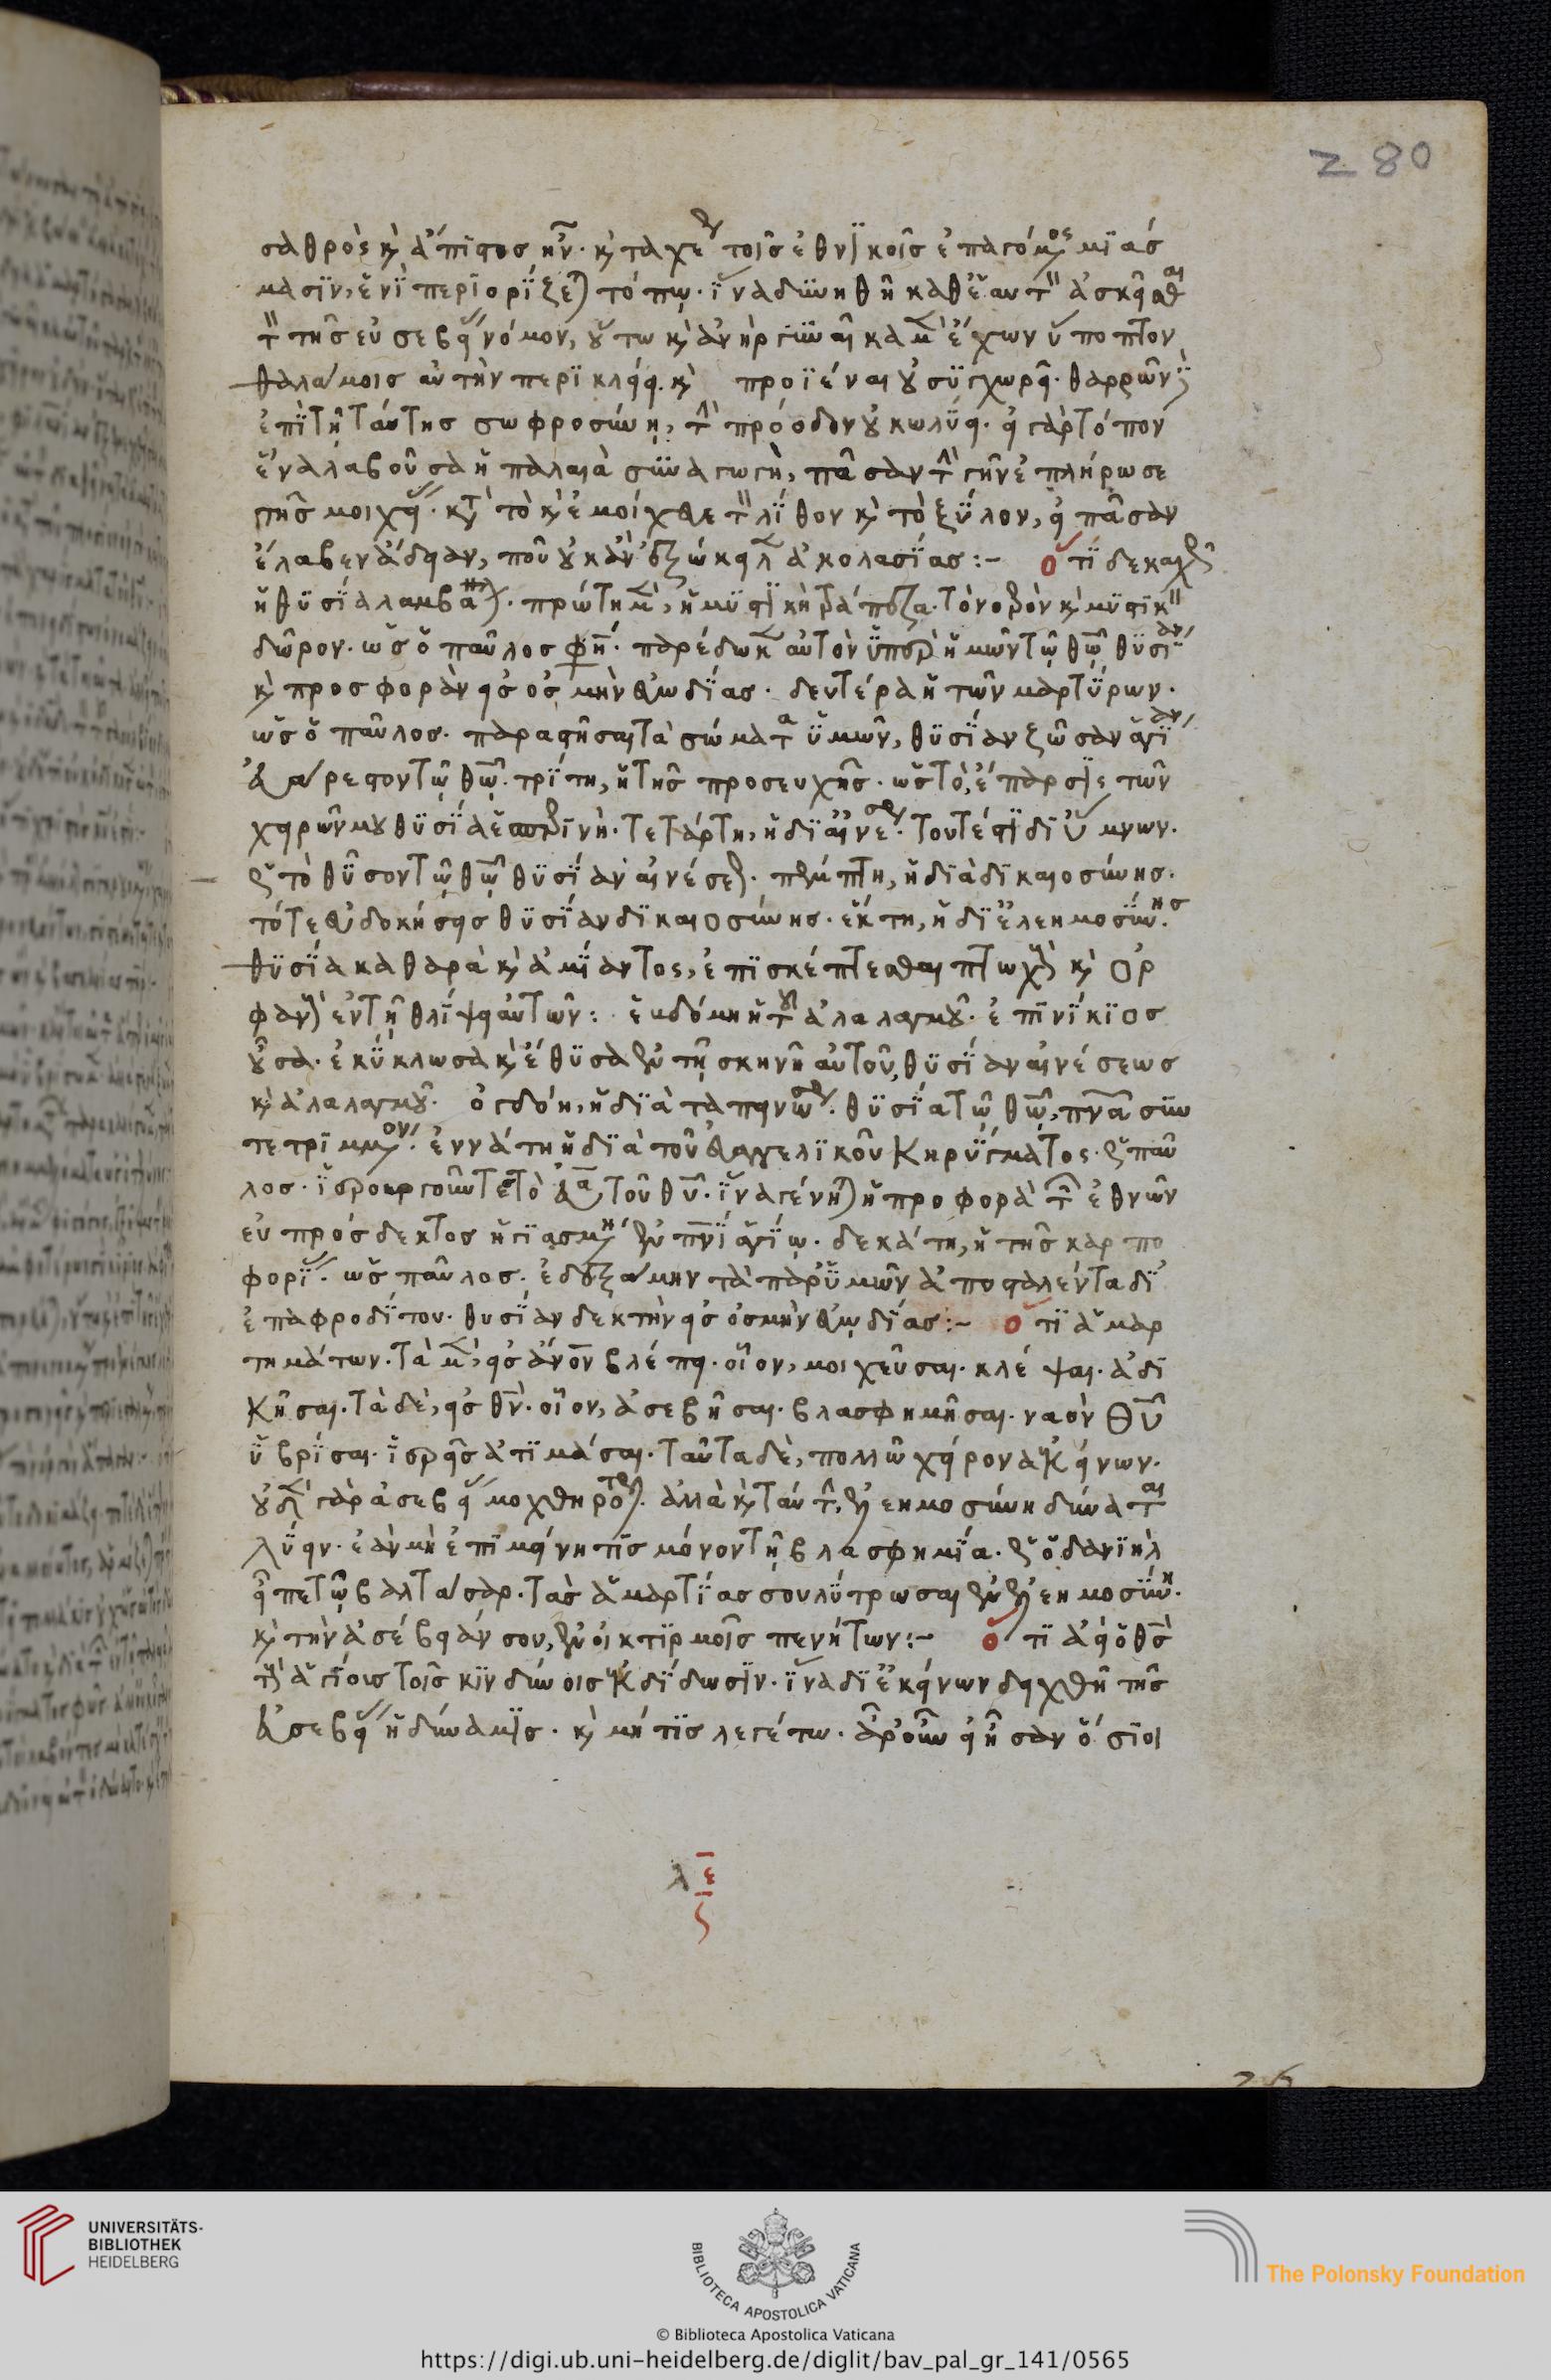 280
σαθρὸς κ ἄπιστος ἦν. κ ταχέως τοῖς ἐθνικοῖς ἐπαγόμενος μιάσ
μασιν, ἑνὶ περιορίζεται τόπῳ. ἵνα δυνηθῆ καθ ἑαυτὸν ἀσκεῖσθαι
τὸν τῆς εὐσεβείας νόμον, οὕτω κ ἀνὴρ γυναῖκα μὲν ἔχων ὕποπτον
θαλάμοις αὐτὴν περικλείει. κ προϊέναι οὐ συγχωρεῖ. θαρρῶν δὲ
ἐπὶ τῆ ταύτης σωφροσύνη, τὴν πρόοδον οὐ κωλύει. εἰ γὰρ τόπον
ἕνα λαβοῦσα ἡ παλαιὰ συναγωγὴ, πᾶσαν τὴν γῆν ἐπλήρωσε
τῆς μοιχείας. κατὰ τὸ κ ἐμοίχευε τὸν λίθον κ τὸ ξύλον, εἰ πᾶσαν
ἔλαβεν ἄδειαν, ποῦ οὐκ ἂν ἐξώκειλεν ἀκολασίας:- ὅτι δεκαχῶς
ἡ θυσία λαμβάνεται. πρώτη μὲν, ἡ μυστικὴ τράπεζα. τὸν μυστικὸν
δῶρον. ὡς ὁ παῦλος φησί. παρέδωκεν αὐτὸν ὑπὲρ ἡμῶν τῷ θῷ θυσίαν
κ προσφορὰν εἰς ὀσμὴν εὐωδίας. δευτέρα ἡ τῶν μαρτύρων.
ὡς ὁ παῦλος. παραστῆσαι τὰ σώματα ὑμῶν, θυσίαν ζῶσαν ἁγίαν
εὐάρεστον τῷ θῷ. τρίτη, ἡ τῆς προσευχῆς. ὡς τὸ, ἔπαρσις τῶν
χειρῶν μου θυσία ἑσπερινή. τετάρτη, ἡ δι αἰνέσεως. τουτέστι δι ὕμνων.
ὡς τὸ θῦσον τῷ θῷ θυσίαν αἰνέσεως. πέμπτη, ἡ διὰ δικαιοσύνης.
τότε εὐδοκήσεις θυσίαν δικαιοσύνης. ἕκτη, ἡ δι ἐλεημοσύνης.
θυσία καθαρὰ κ ἀμίαντος, ἐπισκέπτεσθαι πτωχοὺς κ ὀρ
φανοὺς ἐν τῆ θλίψει αὐτῶν: ἑβδόμη ἡ τοῦ ἀλαλαγμοῦ. ἐπινίκιος
οὖσα. ἐκύκλωσα κ ἔθυσα ἐν τῆ σκηνῆ αὐτοῦ, θυσίαν αἰνέσεως
κ ἀλαλαγμοῦ. ὀγδόη, ἡ διὰ ταπεινώσεως. θυσία τῷ θῷ, πνα συν
τετριμμένον. ἐννάτη ἡ διὰ τοῦ εὐαγγελικοῦ κηρύγματος. ὡς παῦ
λος. ἱερουργοῦντε τὸ εὐα τοῦ θυ. ἵνα γένηται ἡ προφορὰ τῶν ἐθνῶν
εὐπρόσδεκτος ἡγιασμένη ἐν πνι ἁγίῳ. δεκάτη, ἡ τῆς καρπο
φορίας. ὡς παῦλος. ἐδεξάμην τὰ παρ ὑμῶν ἀποσταλέντα δι
ἐπαφροδίτου. θυσίαν δεκτὴν εἰς ὀσμὴν εὐωδίας:- ὅτι ἁμαρ
τημάτων. τὰ μὲν, εἰς ἄνον βλέπει. οἷον, μοιχεῦσαι. κλέψαι. ἀδι
κῆσαι. τὰ δὲ, εἰς θν. οἷον, ἀσεβῆσαι. βλασφημῆσαι. ναὸν θυ
ὑβρίσαι. ἱερεῖς ἀτιμάσαι. ταῦτα δὲ, πολλῶ χείρονα ἐκείνων.
οὐδὲν γὰρ ἀσεβείας μοχθηρότερον. ἀλλὰ κ ταύτην, ἐλεημοσύνη δύναται
λύειν. ἐὰν μὴ ἐπιμείνη τις μόνον τῆ βλασφημία. ὡς ὁ δανιὴλ
εἶπε τῷ βαλτάσαρ. τὰς ἁμαρτίας σου λύτρωσαι ἐν ἐλεημοσύνη.
κ τὴν ἀσέβειάν σου, ἐν οἰκτιρμοῖς πενήτων:- ὅτι ἀεὶ ὁ θς
τοὺς ἁγίους τοῖς κινδύνοις ἐκδίδωσιν. ἵνα δι ἐκείνων δειχθῆ τῆς
εὐσεβείας ἡ δύναμις. κ μή τις λεγέτω. ἆρ οὖν εἰ ἦσαν ὅσιοι
λε
ς
UNIVERSITÄTS-
BIBLIOTHEK
HEIDELBERG
BIBLIOTECA APOSTOLICA VATICANA
The Polonsky Foundation
© Biblioteca Apostolica Vaticana
https://digi.ub.uni-heidelberg.de/diglit/bav_pal_gr_141/0565